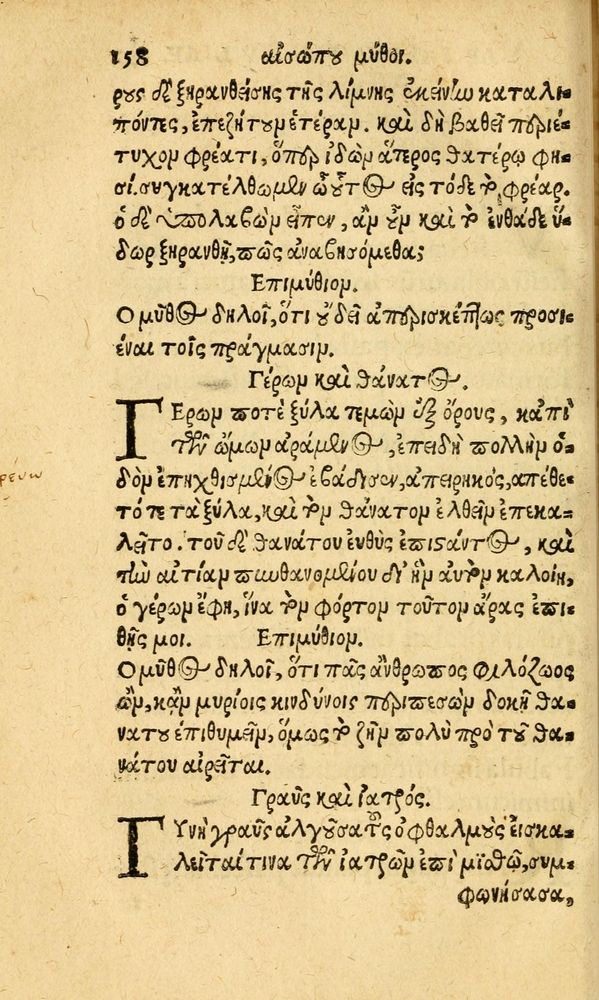 158 αἰσώπου μῦθοι.
ρους δὲ ξηρανθείσης τῆς λίμνης ἐκείνην καταλι-
πόντες, ἐπεζήτουν ἑτέραν. καὶ δὴ βαθεῖ περιέ-
τυχον φρέατι, ὅπερ ἰδὼν ἅτερος θατέρῳ φη-
σί. συγκατέλθωμεν ὦ οὗτος εἰς τόδε τὸ φρέαρ.
ὁ δὲ ὑπολαβὼν εἶπεν, ἂν οὖν καὶ τὸ ἐνθάδε ὕ-
δωρ ξηρανθῇ, πῶς ἀναβησόμεθα;
Επιμύθιον.
Ο μῦθος δηλοῖ, ὅτι οὐ δεῖ ἀπερισκέπτως προσι-
έναι τοῖς πράγμασιν.
Γέρων καὶ θάνατος.
Γέρων ποτὲ ξύλα τεμὼν ἐξ ὄρους, κἀπὶ
τῶν ὤμων ἀράμενος, ἐπειδὴ πολλὴν ὁ-
δὸν ἐπηχθισμένος ἐβάδισεν, ἀπειρηκὼς, ἀπέθε-
τό τε τὰ ξύλα, καὶ τὸν θάνατον ἐλθεῖν ἐπεκα-
λεῖτο. τοῦ δὲ θανάτου εὐθὺς ἐπιστάντος, καὶ
τὴν αἰτίαν πυνθανομένου δι' ἣν αὐτὸν καλοίη,
ὁ γέρων ἔφη, ἵνα τὸν φόρτον τοῦτον ἄρας ἐπι-
θῇς μοι. Επιμύθιον.
Ο μῦθος δηλοῖ, ὅτι πᾶς ἄνθρωπος φιλόζωος
ὢν, κἂν μυρίοις κινδύνοις περιπεσὼν δοκῇ θα-
νάτου ἐπιθυμεῖν, ὅμως τὸ ζῆν πολὺ πρὸ τοῦ θα-
νάτου αἱρεῖται.
Γραῦς καὶ ἰατρός.
Γυνὴ γραῦς ἀλγοῦσα τοὺς ὀφθαλμοὺς εἰσκα-
λεῖταί τινα τῶν ἰατρῶν ἐπὶ μισθῷ, συμ-
φωνήσασα,